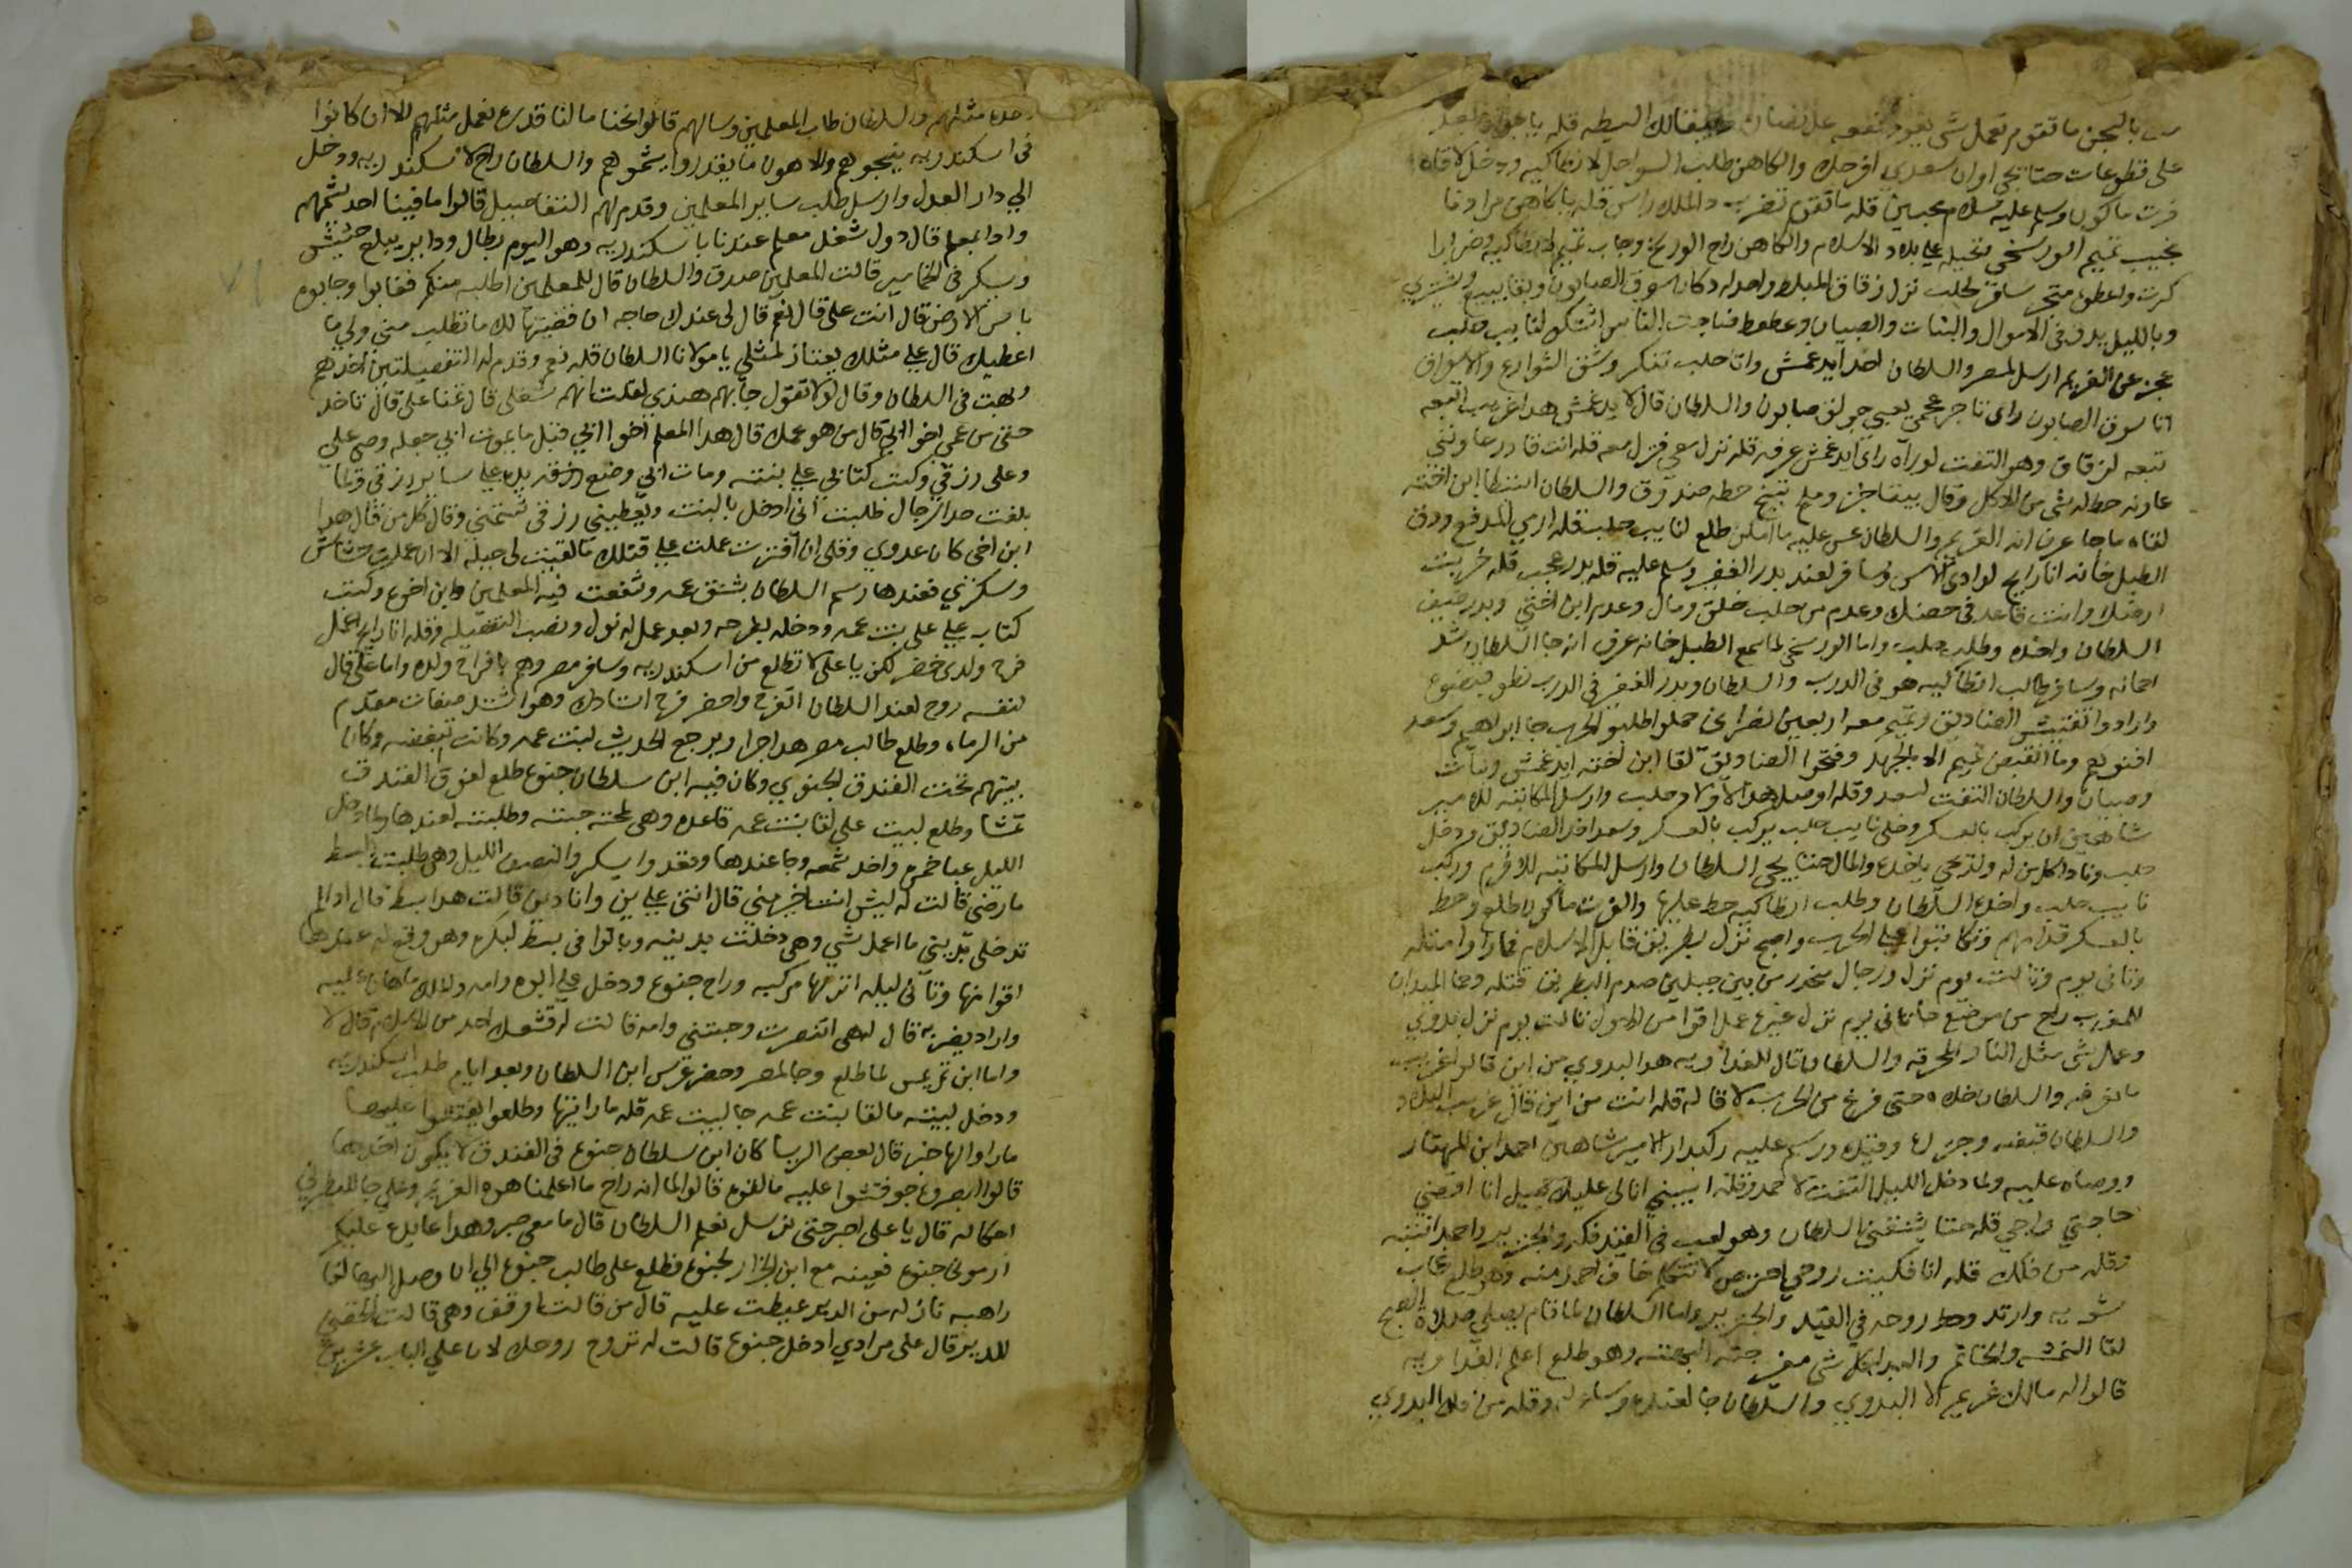 بالجن ما تقوم تعمل شي يعود نفعه على بقالك البسطه قله يا
على قطوعات حتا تجي اوان سعدي افرحك والكاهن طلب السواحل لانطاكيه ودخل لاقاه
فرت ماكون وسلم عليه سلام محبين قله ما تقوم تضرب دا الملك راس قله يا كاهن مرادنا
نجيب تميم الورسخي نخيله على بلاد الاسلام والكاهن راح الورسخ وجاب تميم لانطاكيه وضرابرا
كرت واعطوه متجر سافر لحلب نزل زقاق المبلط واخد له دكان سوق الصابون وبقا يبيع ويشتري
وبالليل يدق في الاموال والبنات والصبيان وعطعط فناجت الناس اشتكو لنايب حلب
عجز عن الغريم ارسل لمصر والسلطان اخد ايدغمش واتا حلب تفكر وشق الشوارع والاسواق
اتا سوق الصابون راى تاجر عجمي يعبي جولق صابون والسلطان قال لايدغمش هدا غريب اتبعه
تبعه لزقاق وهو التفت لوراه راى ايدغمش عرفه قله تنزل معي فنزل معه قله انت قادر عاونني
عاونه حط له شي من الاكل وقال بيقاجن وملح تبنج حطه صندوق والسلطان استنطا ابن اخته
لقاه ما جا عرف انه الغريم والسلطان عس عليه ما امكن طلع لنايب حلب قله ارمي المدفع ودق
الطبل خانه انا رايح لوادي وسافر لعند بدر الغفير وسلم عليه قله بدر عجب قله خربت
ارضك وانت قاعد في حضنك وعدم من حلب خلق ومال وعدم ابن اختي وبدر ضيف
السلطان واخده وطلب حلب واما الورسخي لما سمع الطبل خانه عرف انه جا السلطان شد
احماله وسافر طالب انطاكيه هو في الدرب والسلطان وبدر الغفير في الدرب نطو قبضوع
وارادوا تفتيش الصناديق وتميم معه اربعين نصراني حملوا طلبو الحرب جا ابراهيم وسعد
افنوهم وما انقبض تميم الا بالجهد وفتحوا الصناديق لقا ابن اخته ايدغمش وبنات
وصبيان والسلطان التفت لسعد وقله اوصل هدا لاولاد حلب وارسل المكاتبه للامير
شاهين ان يركب بالعسكر وخلي نايب حلب يركب بالعسكر وسعد اخد الصناديق ودخل
حلب ونادا كل من له ولد يجي ياخدع والمال حتا يجي السلطان وارسل المكاتبه للافرم وركب
نايب حلب واخدع السلطان وطلب انطاكيه حط عليها والفرت ماكون طلع وحط
بالعسكر قدامهم وتكاتبوا على الحرب واصبح نزل بطريق قابل الاسلام فمادوا مقتله
وتاني يوم وتالت يوم نزل ورجال منحدر من بين جبلين صدم البطريق قتله وحما الميدان
للمغرب راح من موضع ما جا تاني يوم نزل غير عمل اقوا من الاول تالت يوم نزل بدوي
وعمل شي مثل النار المحرقه والسلطان قال للفداويه هدا البدوي من اين قالوا غريب
مانعرفه والسلطان خلاه حتى فرغ من الحرب لاقا له قله انت من اين قال غريب البلاد
والسلطان قبضه وجنزلع وقيده ورسم عليه ركبدار الامير شاهين احمد ابن المهتار
ووصاه عليه ولما دخل الليل التفت لاحمد وقله سيبني انا لي عليك جميل انا اقضي
حاجتي واجي قله حتا يشنقني السلطان وهو لعب في القيد فكه والجنزير واحمد انتبه
وقله من فكك قله انا فكيت روحي احترص لا تتكلم خاف احمد منه وهو طلع غاب
شويه وارتد وحط روحه في القيد والجنزير واما السلطان لما قام يصلي صلاة الصبح
لقا النمشه والخاتم والبدله كل شي من وهو طلع اعلم الفداويه
قالوا له مالك غريم الا البدوي والسلطان جا لعندع وساله وقله من فك البدوي
مثلهم والسلطان طلب المعلمين وسالهم قالوا نحنا مالنا قدرع نعمل مثلهم الا ان كانوا
في اسكندريه ينجوهم والا هون ما يقدروا يشموهم والسلطان راح لاسكندريه ودخل
الي دار العدل وارسل طلب ساير المعلمين وقدم لهم التفاصيل قالوا ما فينا احد يشمهم
وادا بمعلم قال دول شغل معلم عندنا باسكندريه وهو اليوم بطال وداير يبلع حشيش
ويسكر في الخمامير قالت المعلمين صدق والسلطان قال للمعلمين اطلبه منكم فغابوا وجابوه
باس الارض قال انت علي قال نعم قال لي عندك حاجه ان قضيتها لك ما تطلب مني ولي ما
اعطيك قال علي مثلك يعتاز لمثلي يا مولانا السلطان قله نعم وقدم له التفصيلتين اخدهم
وبهت في السلطان وقال لولا تقول جابهم هندي لقلت انهم شغلي قال تمنا علي قال تاخد
حقي من عمي اخو ابي قال من هو عمك قال هدا المعلم اخو ابي قبل ما يموت ابي جعله وصي علي
وعلى رزقي وكتب كتابي على بنته ومات ابي وضع يده على ساير رزقي ولما
بلغت حد الرجال طلبت اني ادخل بالبنت ويعطيني رزقي شتمني وقال كل من قال هدا
ابن اخي كان عدوي وقلي ان افترت عملت على قتلك ما لقيت لي حيله الا ان عملت حشاش
وسكرني فعندها رسم السلطان بشنق عمه وتشفعت فيه المعلمين وابن اخوع وكتب
كتاب علي على بنت عمه ودخله بفرحه وبعد عمل له نول ونصب التفصيله وقله انا رايح اعمل
فرح ولدي خضر لكن يا علي لا تطلع من اسكندريه وسافر مصر وهم بافراح ولده واما علي قال
لنفسه روح لعند السلطان اتفرج واحضر فرح استادك وهو اشد صفات مقدم
من الرماه وطلع طالب مصر هدا جرا ويرجع الحديث لبنت عمه وكانت تبغضه وكان
بيتهم تحت الفندق الجنوي وكان فيه ابن سلطان جنوع طلع لفوق الفندق
تمشا وطلع لبيت علي لقا بنت عمه قاعده وهي لمحته حبته وطلبته لعندها ولما دخل
الليل عبا خمرع واخد شمعه وجا عندها وقعدوا يسكروا لنصف الليل وهي طلبت البسط
ما رضي قالت له ليش انت خير مني قال انتي على دين وانا دين قالت هدا بسط قال ادا لم
تدخلي بديني ما اعمل شي وهي دخلت بدينه وباتوا في بسط لبكرع وهو وقع له عندها
اقوا منها وتاني ليله انزلها مركبه وراح جنوع ودخل على ابوع وامه
واراد يضربه قال له هي اتنصرت وحبتني وامه قالت له قشعك احد من الاسلام قال لا
واما ابن تريس لما طلع وجا لمصر وحضر عرس ابن السلطان وبعد ايام طلب اسكندريه
ودخل لبيته ما لقا بنت عمه جا لبيت عمه قله ما رايتها وطلعوا يفتشوا عليها
ما راوا لها خبر قال بعض الريسا كان ابن سلطان جنوع في الفندق لا يكون اخدها
قالوا ابصروع جو فتشوا عليه ما لقوع قالوا لما انه راح ما اعلمنا هوه الغريم وعلي جا للبطرني
احكا له قال يا علي اصبر حتى نرسل نعلم السلطان قال ما معي صبر وهدا عايدع عليكم
ارموني جنوع فعينه مع ابن الجزار لجنوع فطلع علي طالب جنوع الي ان وصل اليها لقا
راهبه نازله من الدير عيطت عليه قال من قالت اوقف وهي قالت الحقني
للدير قال علي مرادي ادخل جنوع قالت له تروح روحك لان علي الباب عشرين